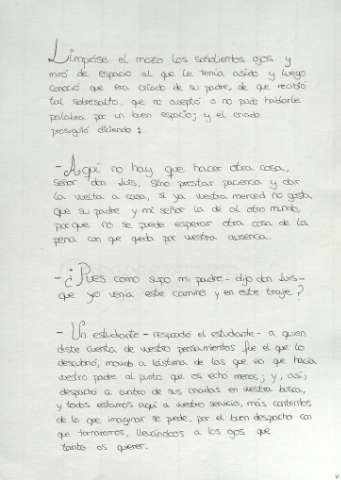 Limpióse el mozo los soñolientos ojos y
miró de espacio al que le tenía asido y luego
conoció que era criado de su padre, de que recibió
tal sobresalto, que no acertó o no pudo hablarle
palabra por un buen espacio; y el criado
prosiguió diciendo:
-Aquí no hay que hacer otra cosa,
señor don Luis, sino prestar paciencia y dar
la vuelta a casa, si ya vuestra merced no gusta
que su padre y mi señor la dé al otro mundo,
porque no se puede esperar otra cosa de la
pena con que queda por vuestra ausencia.
-¿Pues como supo mi padre - dijo don Luis -
que yo venía este camino y en este traje?
- Un estudiante - respondió el estudiante - a quien
diste cuenta de vuestro pensamientos fue el que lo
descubrió, movido a lástima de las que vio que hacía
vuestro padre al punto que os echó menos; y, así,
despachó a cuatro de sus criados en vuestra busca,
y todos estamos aquí a vuestro servicio, más contentos
de lo que imaginar se puede, por el buen despacho con
que tornaremos, llevándoos a los ojos que
tanto os quieren.